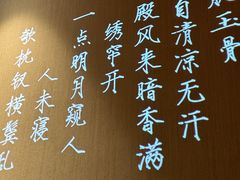 玉骨
自清凉无汗
殿风来暗香满
绣帘开
一点明月窥人
人未寝
欹枕钗横鬓乱